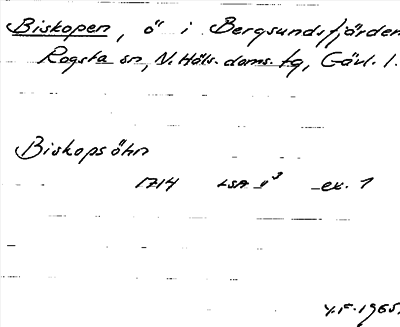 Biskopen, ö i Bergsundsfjärden
Rogsta sn, N. Häls. doms. tg, Gävl. l.
Biskopsöhn
1714 LSA ex. 1
Y.F. 1965.